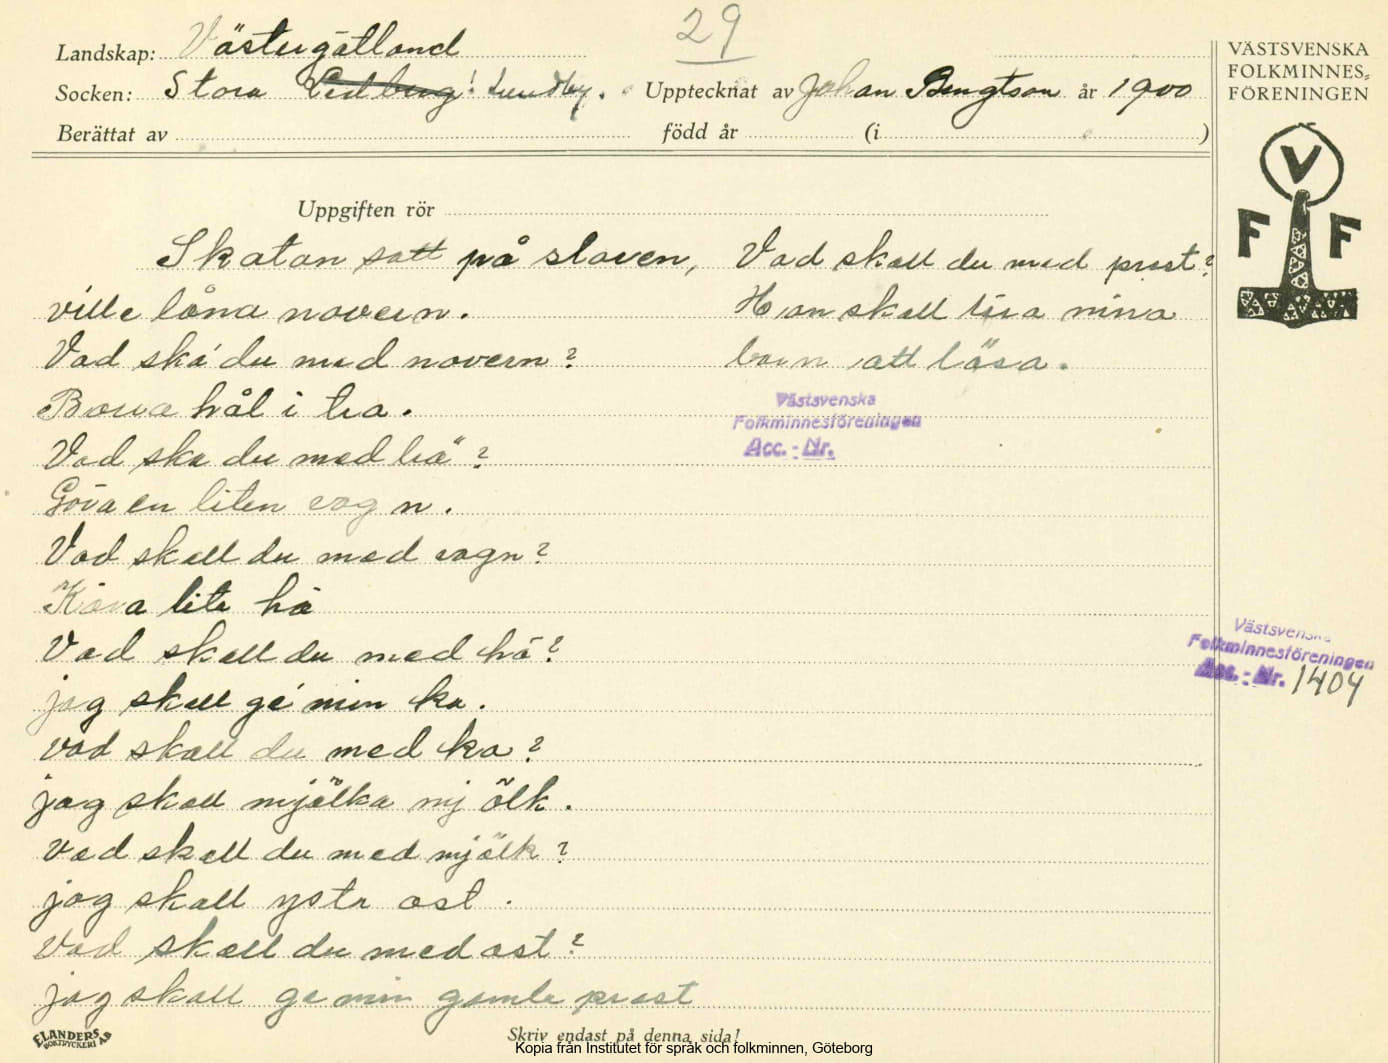 29
Landskap: Västergötland
Socken: Stora Lundby. Upptecknat av Johan Bengtson år 1900
Berättat av född år (i )
VÄSTSVENSKA
FOLKMINNES=
FÖRENINGEN
V
F F
Uppgiften rör
Skatan satt på staven,
ville låna navern.
Vad ska' du med navern?
Borra hål i trä.
Vad ska du med trä?
Göra en liten vagn.
Vad skall du med vagn?
Köra lite hö
Vad skall du med hö?
jag skall ge' min ko.
vad skall du med ko?
jag skall mjölka mjölk.
Vad skall du med mjölk?
jag skall ysta ost.
Vad skall du med ost?
jag skall ge min gamle prest
Vad skall du med prest?
Han skall lära mina
barn att läsa.
Västsvenska
Folkminnesföreningen
Acc. - Nr.
Västsvenska
Folkminnesföreningen
Acc. - Nr. 1404
ELANDERS
BOKTRYCKERI AB
Skriv endast på denna sida!
Kopia från Institutet för språk och folkminnen, Göteborg